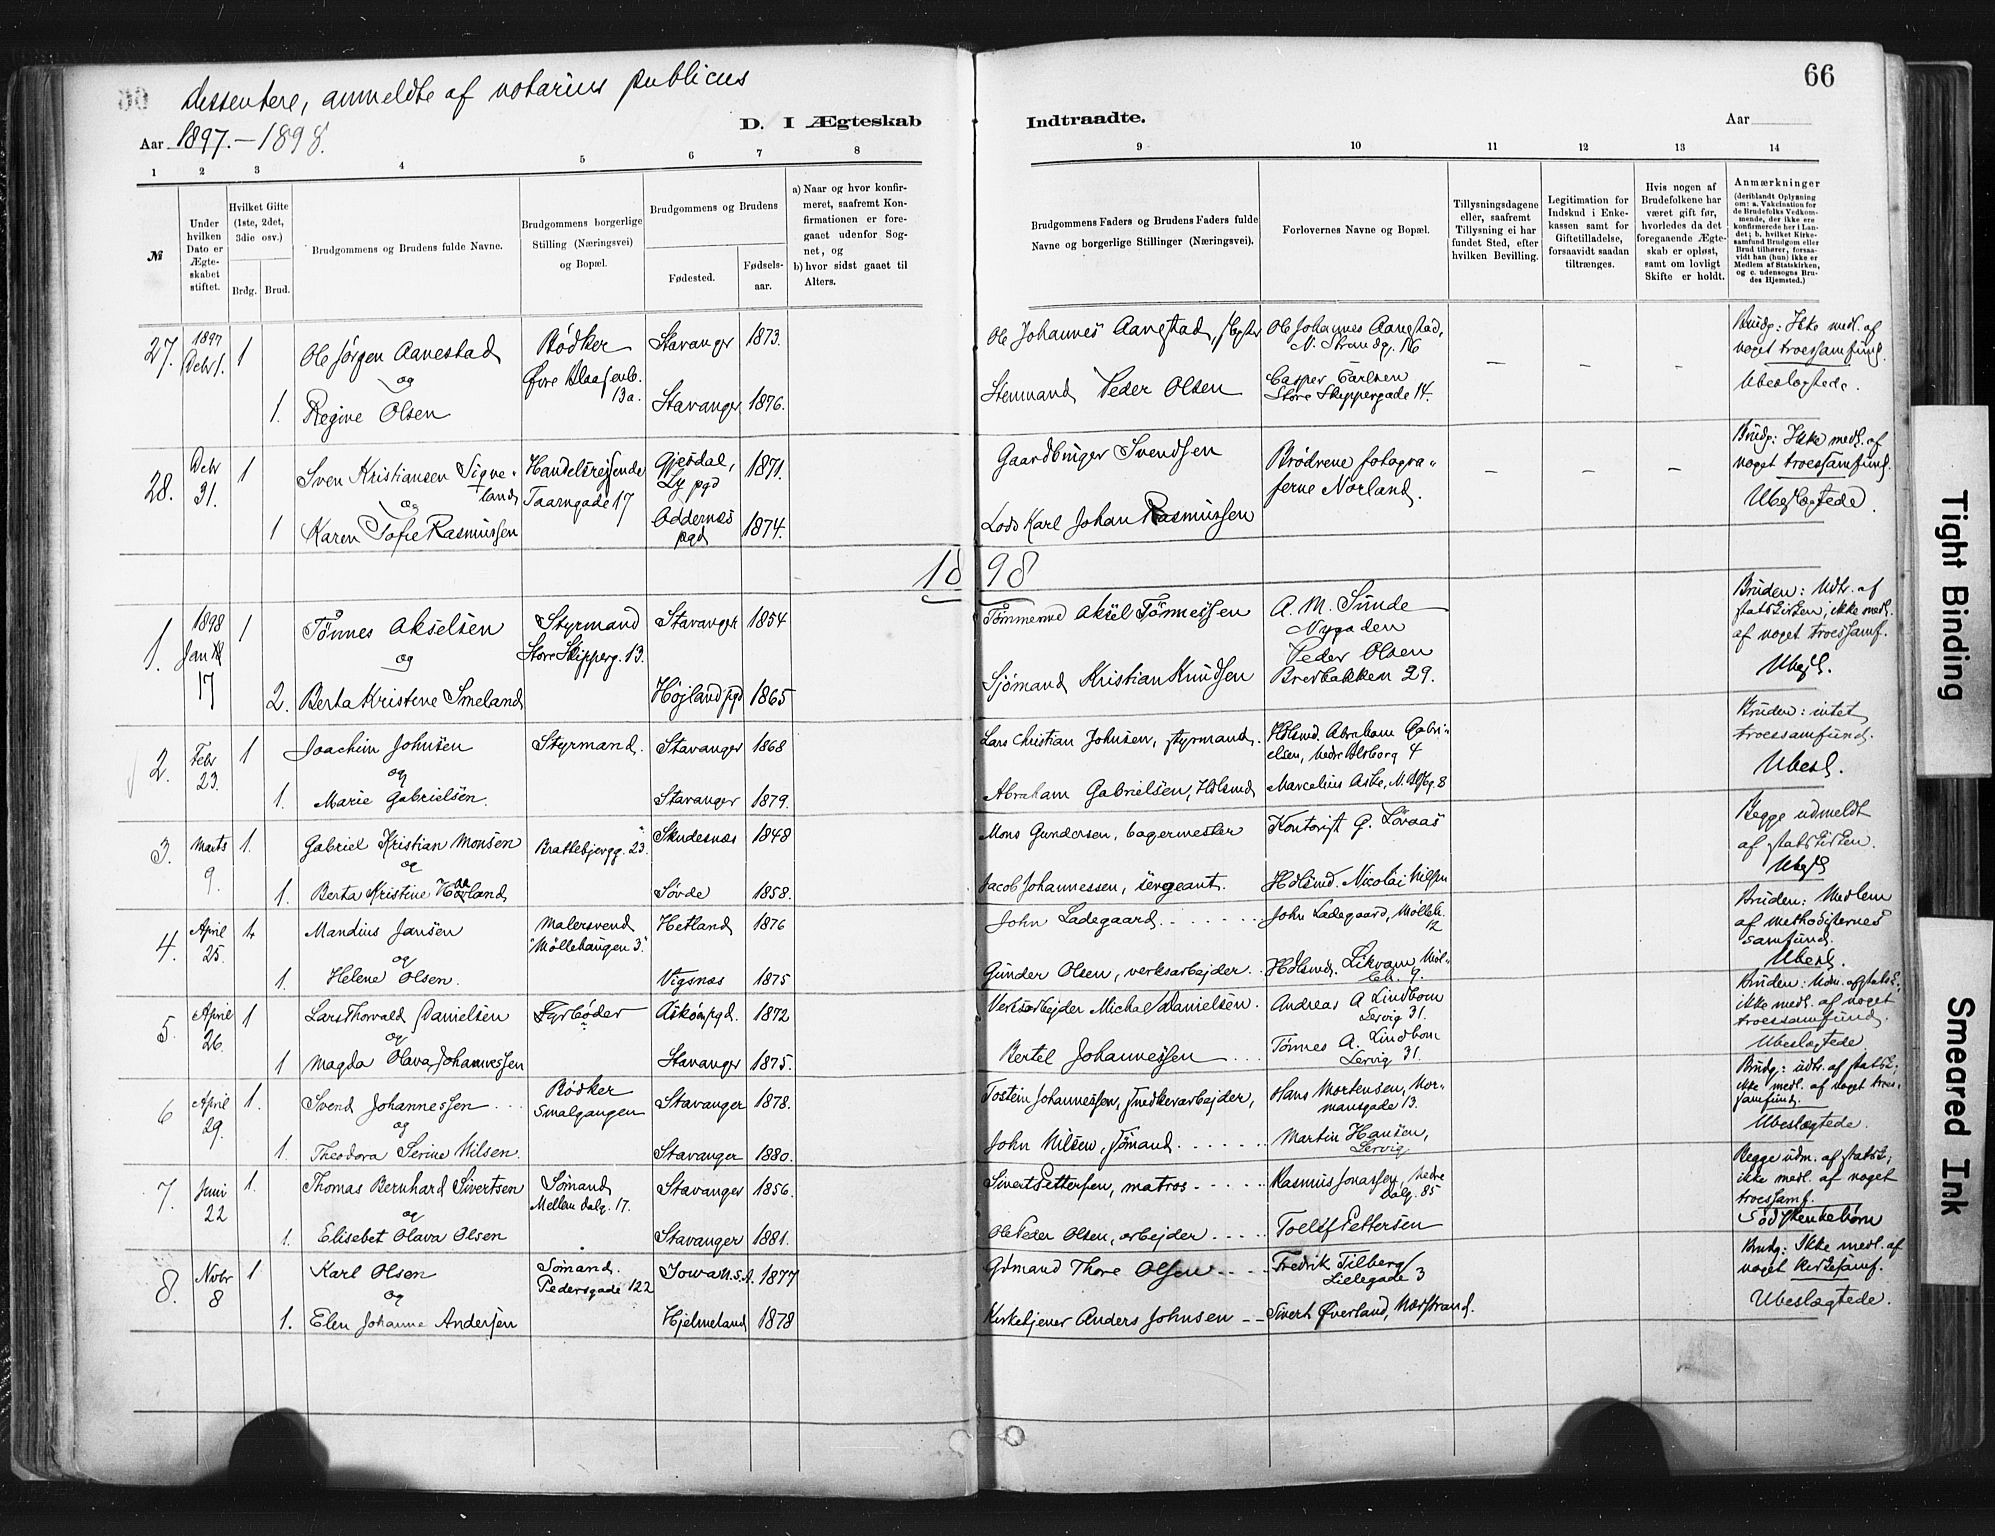 66
dissentere, anmeldte af notarius publicus
Aar 1897.—1898.
D. I Ægteskab Indtraadte.
Aar
1 2 3 4 5 6 7 8 9 10 11 12 13 14
№
Under hvilken Dato er Ægteskabet stiftet.
Hvilket Gifte (1ste, 2det, 3die osv.)
Brdg. Brud.
Brudgommens og Brudens fulde Navne.
Brudgommens borgerlige Stilling (Næringsvei) og Bopæl.
Brudgommens og Brudens
Fødested. Fødselsaar.
a) Naar og hvor konfirmeret, saafremt Konfirmationen er foregaaet udenfor Sognet, og
b) hvor sidst gaaet til Alters.
Brudgommens Faders og Brudens Faders fulde Navne og borgerlige Stillinger (Næringsvei).
Forlovernes Navne og Bopæl.
Tillysningsdagene eller, saafremt Tillysning ei har fundet Sted, efter hvilken Bevilling.
Legitimation for Indskud i Enkekassen samt for Giftetilladelse, forsaavidt saadan tiltrænges.
Hvis nogen af Brudefolkene har været gift før, hvorledes da det foregaaende Ægteskab er opløst, samt om lovligt Skifte er holdt.
Anmærkninger (deriblandt Oplysning om: a. Vakcination for de Brudefolks Vedkommende, der ikke ere konfirmerede her i Landet; b. hvilket Kirkesamfund Brudgom eller Brud tilhører, forsaavidt han (hun) ikke er Medlem af Statskirken, og c. udensogns Brudes Hjemsted.)
27. 1897 Debr 1. 1 Ole Jørgen Aanestad Bødker Øvre 13a. Stavanger 1873. Ole Johannes Ole Johannes N. Strandg. 16 – – – Brudg: Ikke medl. af noget troessamfund.
og
1. Regine Olsen Stavanger 1876. Stenmand Peder Olsen Casper Carlsen Store Skippergade 14. Ubeslægtede.
28. Debr 31. 1 Sven Kristiansen Sigveland Handelsreisende Taarngade 17 Gjesdal, Ly pgd 1871. Gaardbruger Svendsen Brødrene fotograferne Norland. – – – Brudg: Ikke medl. af noget troessamfund.
og
1 Karen Tofie Rasmussen Oddernes pgd 1874. Lods Karl Johan Rasmussen Ubeslægtede.
1898
1. 1898 Jan 17 1 Tønnes Akselsen Styrmand Store Skipperg. 13. Stavanger 1854 Tømmermd Aksel Tønnessen A. M. Sunde Nygaden Bruden: Udtr. af statskirken, ikke medl. af noget troessamf.
og
2. Berta Kristine Smeland Højland pgd 1865 Sjømand Kristian Knudsen Peder Olsen Bredbakken 29. Ubesl.
2. Febr 23. 1 Joachim Johnsen Styrmand. Stavanger 1868 Lars Christian Johnsen, styrmand. Hdlsmd. Abraham Gabrielsen, Nedre 4 Bruden: intet troessamfund.
og
1. Marie Gabrielsen. Stavanger 1879. Abraham Gabrielsen, Hdlsmd Marcelius Aske, 8 Ubesl.
3. Marts 9. 1. Gabriel Kristian Monsen Brattebjergg. 23. Skudesnæs 1848 Mons Gundersen, bagermester Kontorist G. Løvaas Begge udmeldt af statskirken.
og
1. Berta Kristine Søvde 1858. Jacob Johannessen, sergeant. Hdlsmd. Nicolai Nilsen Ubesl
4. April 25. 1. Mandius Jansen Malersvend "Møllehaugen 3." Hetland 1876 John Ladegaard. John Ladegaard, Mølleh. 12 Bruden: Medlem af Methodisternes samfund.
og
1. Helene Olsen. Vigsnæs 1875 Gunder Olsen, verksarbejder. Hdlsmd. Likvam Mølleh. 9. Ubesl.
5. April 26. 1 Lars Thorvald Danielsen Fyrbøder Askøn pgd. 1872 Verksarbejder Michael Danielsen. Andreas A Lindbom Lervig 31. Bruden: Udm. af statsk., ikke medl. af noget troessamfund.
og
1 Magda Olava Johannessen Stavanger 1875. Bertel Johannessen Tønnes A. Lindbom Lervig 31. Ubeslægtede.
6 April 29. 1. Svend Johannessen Bødker Smalgangen Stavanger 1878. Tostein Johannessen, snedkerarbejder, Hans Mortensen, Normansgade 13. Brudg: udtr. af statsk., ikke medl. af noget troessamfund.
og
1. Theodora Serine Nilsen. Stavanger 1880. John Nilsen, sømand. Martin Hansen, Lervig Ubeslægtede.
7. Juni 22 1. Thomas Bernhard Sivertsen Sømand Mellem dalg. 17. Stavanger 1856. Sivert Pettersen, matros Rasmus Jonassen, Nedre Dalg. 85 Begge udm. af statsk., ikke medl. af noget troessamf.
og
1. Elisebet Olava Olsen Stavanger 1881. Ole Peder Olsen, arbejder Toellef Pettersen Sødskenkebørn
8. Novbr 8 1 Karl Olsen Sømand. Pedersgade 122 Iowa U.S.A. 1877 Sømand Thore Olsen Fredrik Tilberg Lielegade 3 Brudg: Ikke medl. af noget kirkesamf.
og
1. Elen Johanne Andersen Hjelmeland 1878 Kirketjener Anders Johnsen Sivert Øverland, Norstrand. Ubeslægtede.
Tight Binding
Smeared Ink